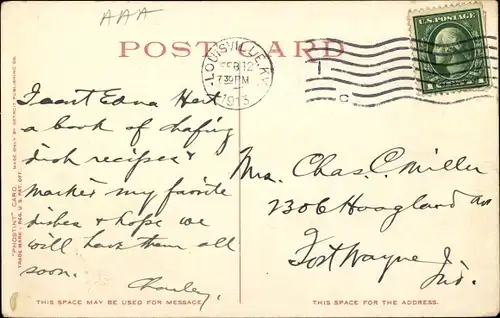 AAA
POST CARD
LOUISVILLE, KY.
FEB 12
7 30 PM
1913
U.S. POSTAGE
1
C
I sent Edna Hert
a book of chafing
dish recipes &
marked my favorite
dishes & hope we
will have them all
soon.
Charley.
Mrs. Chas. C. Miller
1306 Hoagland Av
Fort Wayne
Ind.
"PHOSTINT" CARD. MADE ONLY BY DETROIT PUBLISHING CO.
TRADE MARK - REG. U.S. PAT. OFF.
THIS SPACE MAY BE USED FOR MESSAGE
THIS SPACE IS FOR THE ADDRESS.